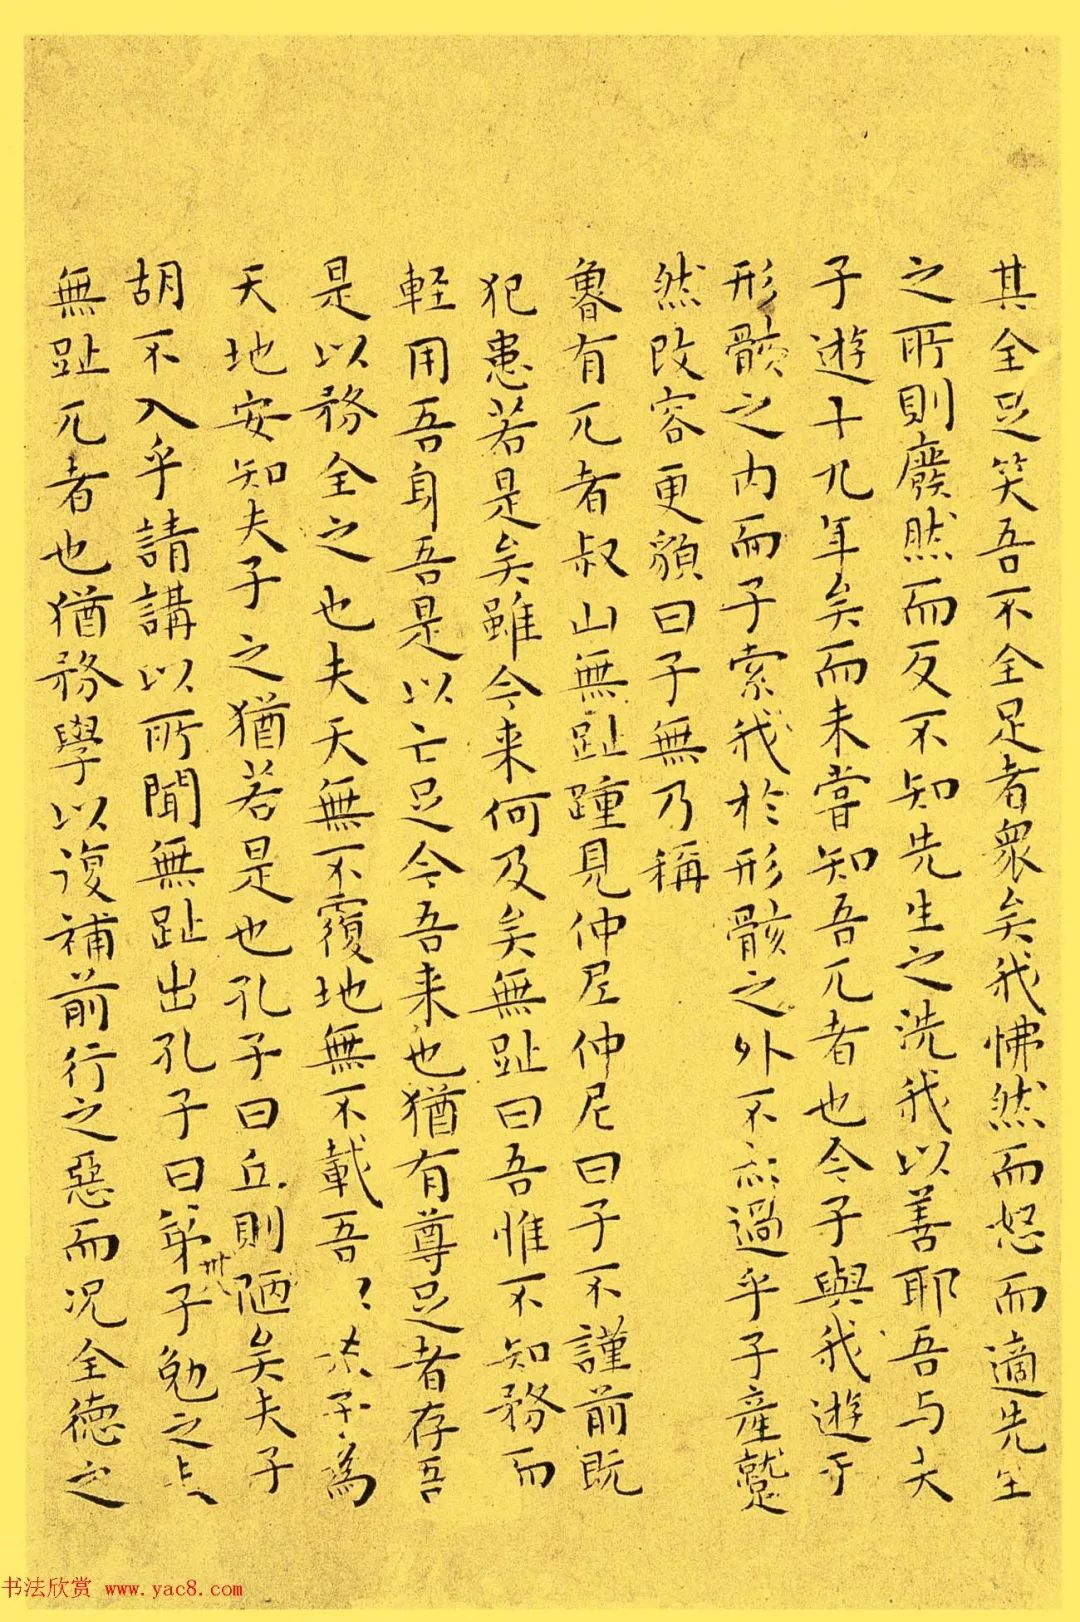 其全足笑吾不全足者衆矣我怫然而怒而適先生
之所則廢然而反不知先生之洗我以善耶吾与夫
子遊十九年矣而未嘗知吾兀者也今子與我遊于
形骸之内而子索我於形骸之外不亦過乎子產蹵
然改容更貌曰子無乃稱
魯有兀者叔山無趾踵見仲尼仲尼曰子不謹前既
犯患若是矣雖今来何及矣無趾曰吾惟不知務而
軽用吾身吾是以亡足今吾来也猶有尊足者存吾
是以務全之也夫天無不覆地無不載吾〻夫子為
天地安知夫子之猶若是也孔子曰丘則陋矣夫子
胡不入乎請講以所聞無趾出孔子曰弟子勉之
無趾兀者也猶務學以復補前行之惡而况全德之
书法欣赏 www.yac8.com